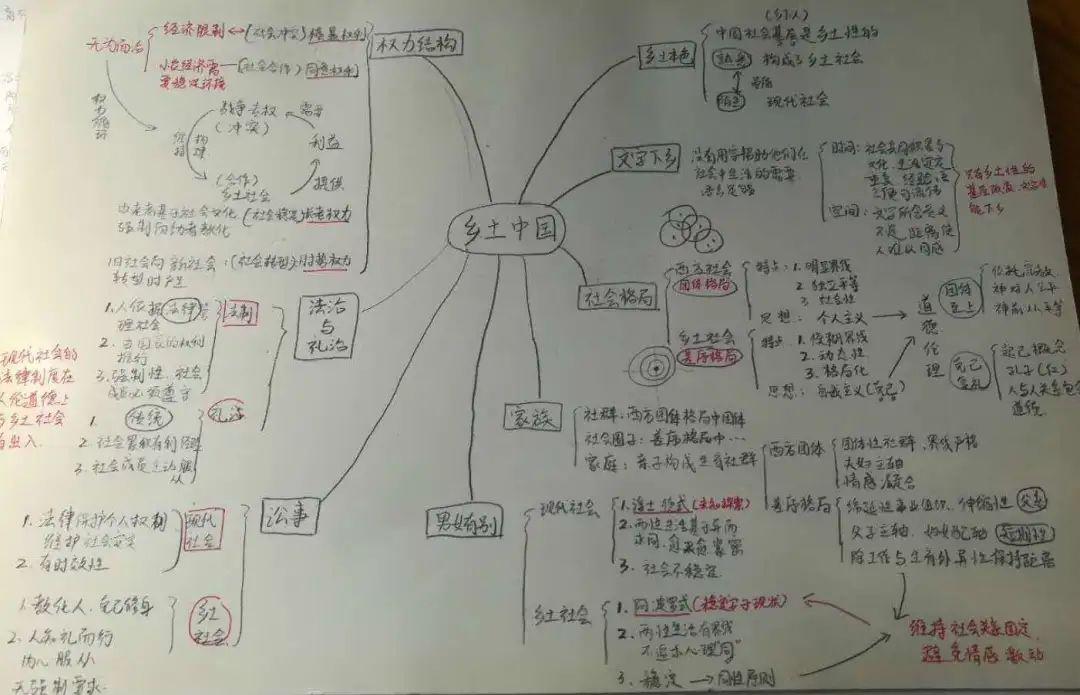 乡土中国
乡土本色
(乡下人)
中国社会基层是乡土性的
熟悉 构成了乡土社会
陌生 现代社会
文字下乡
没有用字帮助他们在
社会中生活的需要
时间:社会共同积累
文化,生活定
重复,经验
空间:文字所含意义
不足,距离使
人难以同感
只有乡土性的
基层改变,文字才
能下乡
社会格局
西方社会
团体格局
特点:1.明显界线
2.独立平等
3.社会性
思想:个人主义
乡土社会
差序格局
特点:1.模糊界线
2.动态性
3.格局化
思想:自我主义(自己)
道德伦理
团体
至上
神对人公平
神前人人平等
克己
复礼
孔子(仁)
道德
家族
社群:西方团体格局中团体
社会圈子:差序格局中…
家庭:亲子构成生育社群
西方团体
团体性社群,界线严格
夫妇主轴
情感凝合
差序格局
绵延性事业组织,伸缩性
父子主轴,婆媳配轴
除工作与生育外异性保持距离
男女有别
现代社会
1.浮士德式
2.两性生活基于异而
求同,愈来愈紧密
3.社会不稳定
乡土社会
1.阿波罗式(稳定安于现状)
2.两性生活有界线
不追求心理"同"
3.稳定→同性原则
维持社会关系固定,
避免情感激动
权力结构
无为而治
经济限制↔(社会冲突)横暴权利
小农经济需
要稳定环境
(社会合作)同意权利
权力循环
战争专权
(冲突)
需要
利益
提供
(合作)
乡土社会
维持
构建
由老者基于社会文化(社会稳定)长老权力
强制向幼者教化
旧社会向新社会:(社会转型)时势权力
转型时产生
法治
与
礼治
法制
1.人依据法律管
理社会
2.由国家的权利
推行
3.强制性,社会
成员必须遵守
礼治
1.传统
2.社会累积有利经验
3.社会成员主动服
从
现代社会的
法律制度在
人伦道德上
与乡土社会
有出入.
讼事
现代
社会
1.法律保护个人权利
维护社会安定
2.有时效性
乡土
社会
1.教化人,克己修身
2.人知礼而行
内心服从
无强制要求.